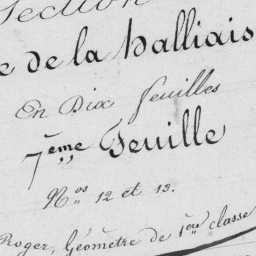 Section
e de la halliais
En Dix feuilles
7ème Feuille
Nos 12 et 13.
Roger, Géomètre de 1ère classe